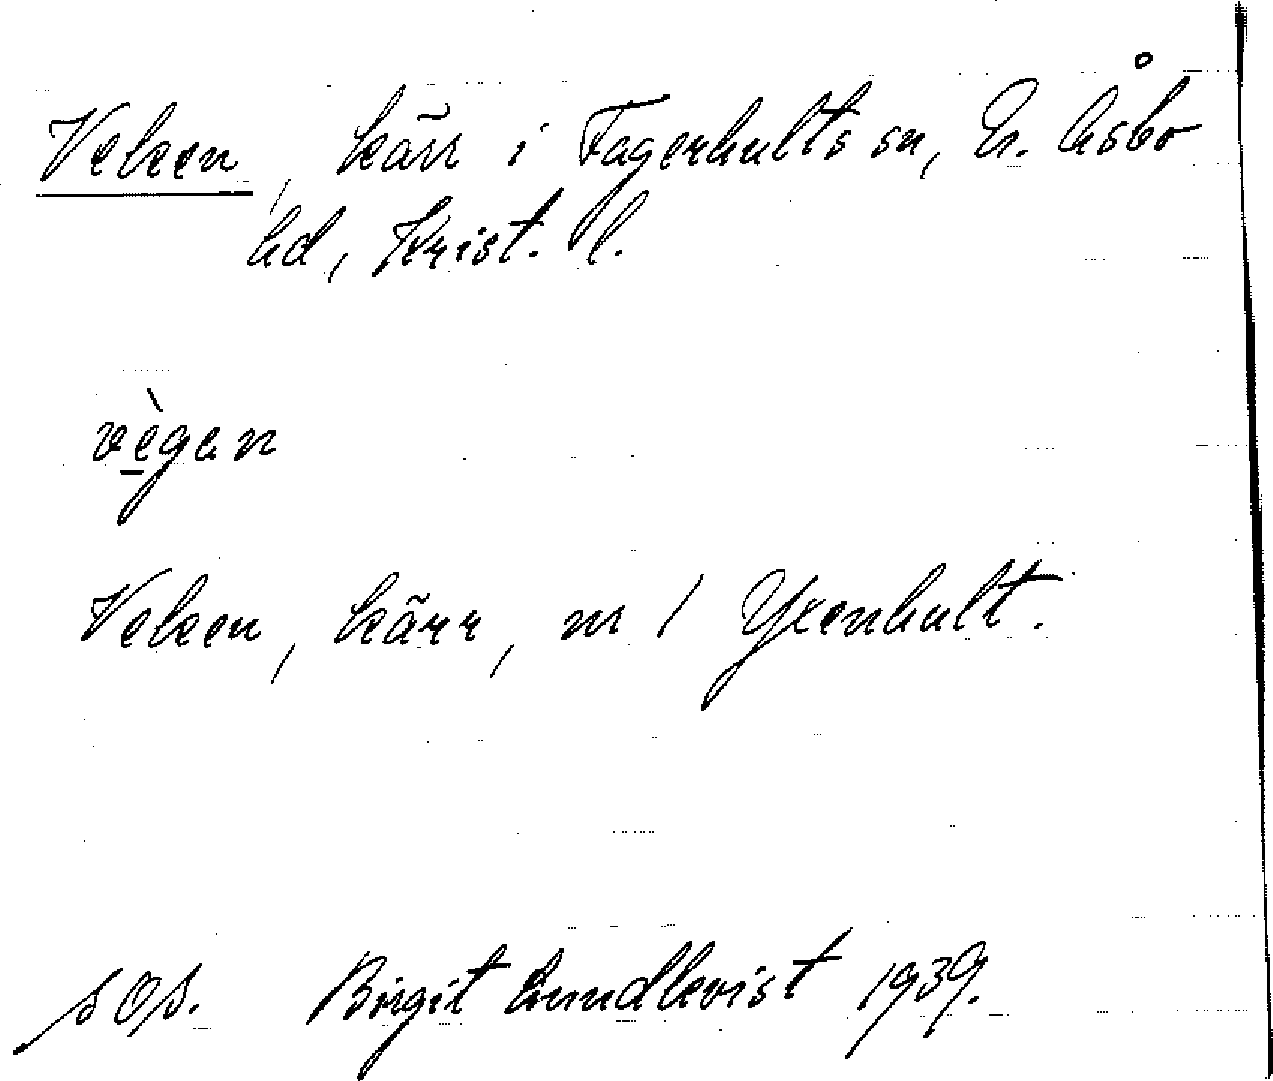 Veken, kärr i Fagerhults sn, N. Åsbo
hd, Krist. l.
vègan
Veken, kärr, nr 1 Yxenhult.
s O s. Birgit Lundkvist 1939.